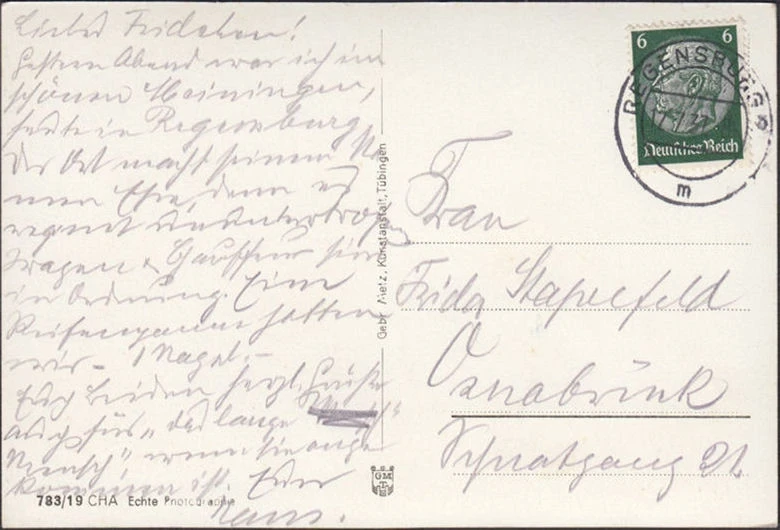 Liebes Fridchen!
Gestern Abend war ich im
schönen Meiningen,
heute in Regensburg.
Der Ort macht seinem Na-
men Ehre, denn es
regnet ununterbrochen
Wagen & Chauffeur sind
in Ordnung. Eine
Reifenpanne hatten
wir - 1 Nagel. -
Euch beiden herzl. Grüße
auch für „das lange
Mensch“ wenn sie ange-
kommen ist. Euer
Hans.
Gebr. Metz, Kunstanstalt, Tübingen
GM
783/19 CHA Echte Photographie
6 6
Deutsches Reich
REGENSBURG
m
Frau
Frida Stapelfeld
Osnabrück
21